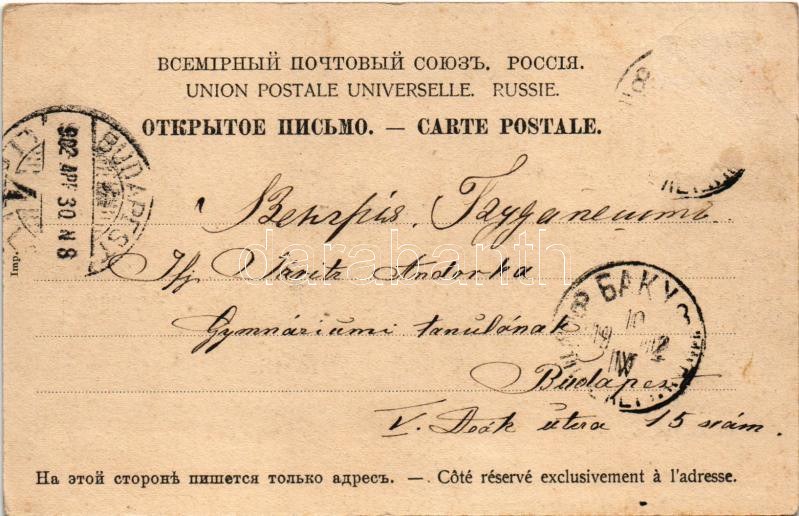 ВСЕМІРНЫЙ ПОЧТОВЫЙ СОЮЗЪ. РОССІЯ.
UNION POSTALE UNIVERSELLE. RUSSIE.
ОТКРЫТОЕ ПИСЬМО. — CARTE POSTALE.
BUDAPEST
902 APR 30 N 8
Венгрія. Будапештъ
Ifj Váritz Andorka
Gymnáziumi tanulónak
БАКУ
10
Budapest
V. Deák utca 15 szám.
Imp.
darabanth
На этой сторонѣ пишется только адресъ. — Côté réservé exclusivement à l'adresse.